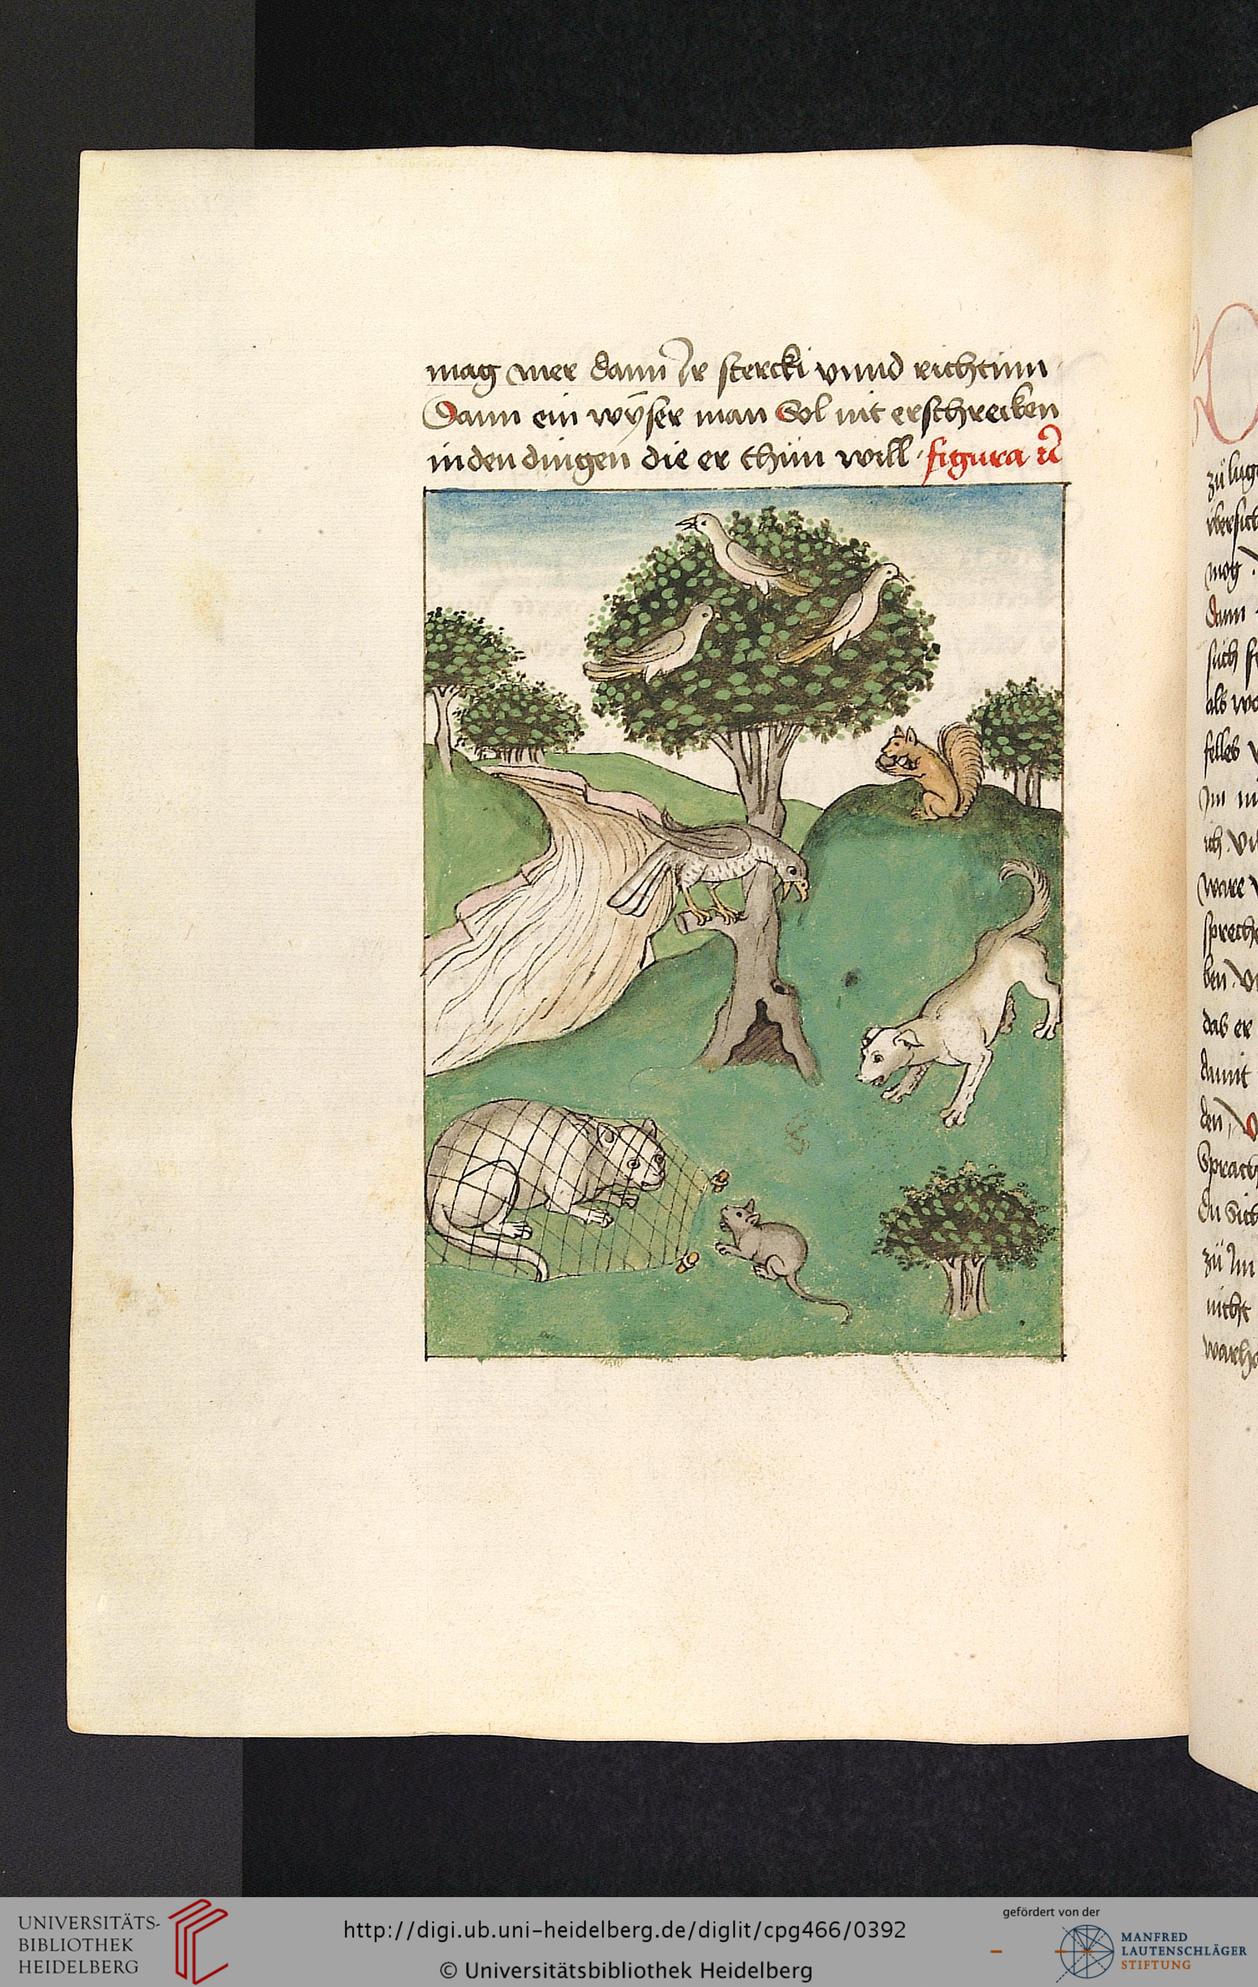 mag mer dann Ir stercki vnnd richtum
Dann ein wÿser man Sol nit erschrecken
in den dingen die er thun will · figura
zü lug
mog
dann
sich
als
felles
Im
ich
ware
spreche
ben
das er
damit
den
Sprach
du Sich
zü Im
nicht
warh
UNIVERSITÄTS-
BIBLIOTHEK
HEIDELBERG
http://digi.ub.uni-heidelberg.de/diglit/cpg466/0392
© Universitätsbibliothek Heidelberg
gefördert von der
MANFRED
LAUTENSCHLÄGER
STIFTUNG